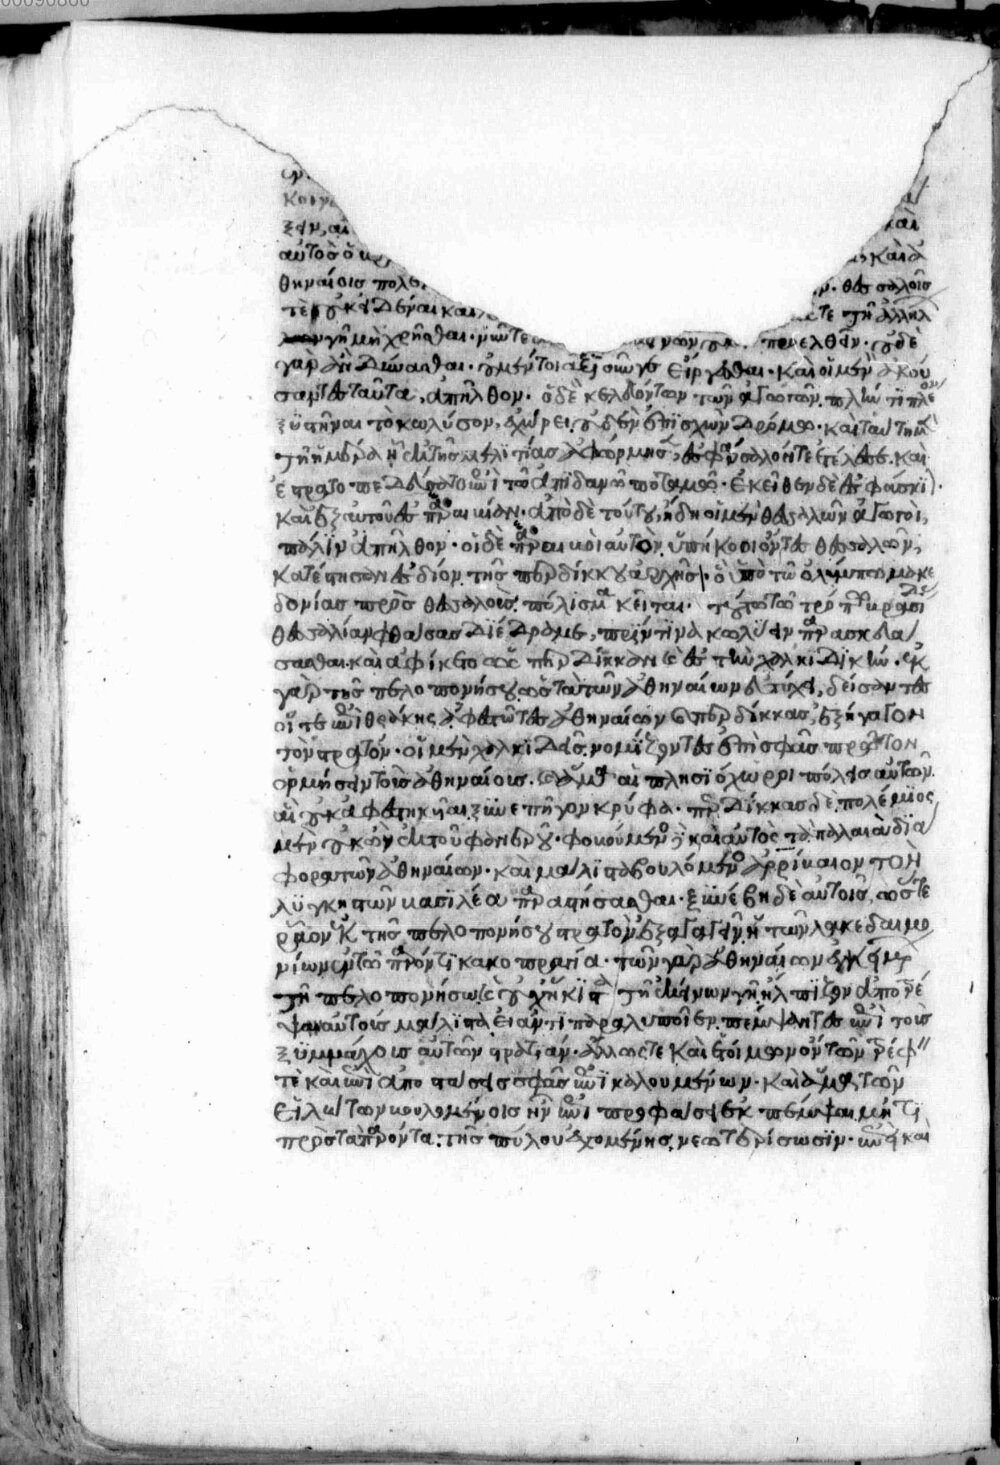 κοιν
ξεῖν, αι καὶ
αὐτὸς ὁ βρ καὶ ἀ
θηναίοις πολε ν· θεσσαλοῖς
τὲ οὐκ εἰδέναι καὶ τε τῆ ἀλλήλ
γῆ μὴ χρῆσθαι· νῦν τε νων οὐκ προελθεῖν· οὐδὲ
γὰρ ἂν δύνασθαι· οὐ μέντοι ἀξιοῦν γε εἴργεσθαι· καὶ οἱ μὲν ἀκού
σαντες ταῦτα, ἀπῆλθον· ὁ δὲ κελευόντων τῶν ἀγωγῶν. πρίν τι πλέον
ξυστῆναι τὸ κωλύσον, ἐχώρει οὐδὲν ἐπισχὼν δρόμω· καὶ ταύτη μὲν
τῆ ἡμέρα ἧ ἐκ τῆς μελιτίας ἀφώρμησεν, ἐς φάρσαλόν τε ἐτέλεσε. καὶ
ἐστρατοπεδεύσατο ἐπὶ τῶ ἀπιδανῶ ποταμῶ· ἐκεῖθεν δὲ ἐς φάσκιον·
καὶ ἐξ αὐτοῦ ἐς περαιβίαν· ἀπὸ δὲ τούτου, ἤδη οἱ μὲν θεσσαλῶν ἀγωγοὶ,
πάλιν ἀπῆλθον· οἱ δὲ περαιβοὶ αὐτὸν, ὑπήκοοι ὄντες θεσσαλῶν,
κατέστησαν ἐς δίον τῆς περδίκκου ἀρχῆς· ὃ ὑπὸ τῶ ὀλύμπω μακε
δονίας πρὸς θεσσαλοὺς πόλισμα κεῖται· τούτω τῶ τρόπω βρασίδας
θεσσαλίαν φθάσας διέδραμε, πρίν τινα κωλύειν παρασκευά
σασθαι· καὶ ἀφίκετο ὡς περδίκκαν καὶ ἐς τὴν χαλκιδικήν· ἐκ
γὰρ τῆς πελοποννήσου ὡς τὰ τῶν ἀθηναίων εὐτύχει, δείσαντες
οἵ τε ἐπὶ θράκης ἀφεστῶτες ἀθηναίων καὶ περδίκκας, ἐξήγαγον
τὸν στρατόν· οἱ μὲν χαλκιδεῖς νομίζοντες ἐπὶ σφᾶς πρῶτον
ὁρμήσειν τοὺς ἀθηναίους· καὶ ἅμα αἱ πλησιόχωροι πόλεις αὐτῶν
αἱ οὐκ ἀφεστηκυῖαι ξυνεπῆγον κρύφα· περδίκκας δὲ, πολέμιος
μὲν οὐκ ὢν ἐκ τοῦ φανεροῦ· φοβούμενος καὶ αὐτὸς τὰ παλαιὰ διά
φορα τῶν ἀθηναίων· καὶ μάλιστα βουλόμενος ἀρρίβαιον τὸν
λυγκηστῶν βασιλέα παραστήσασθαι· ξυνέβη δὲ αὐτοῖς, ὥστε
ρᾶον ἐκ τῆς πελοποννήσου στρατὸν ἐξαγαγεῖν ἡ τῶν λακεδαιμο
νίων ἐν τῶ παρόντι κακοπραγία· τῶν γὰρ ἀθηναίων ἐγκειμένων
τῆ πελοποννήσω καὶ οὐχ ἥκιστα τῆ ἐκείνων γῆ ἤλπιζον ἀποτρέ
ψειν αὐτοὺς μάλιστα εἰ ἀντιπαραλυποῖεν πέμψαντες ἐπὶ τοὺς
ξυμμάχους αὐτῶν στρατιάν· ἄλλως τε καὶ ἑτοίμων ὄντων τρέφειν
τὲ καὶ ἐπὶ ἀποστάσει σφᾶς ἐπικαλουμένων· καὶ ἅμα τῶν
εἱλώτων βουλομένοις ἦν ἐπὶ προφάσει ἐκπέμψαι μή τι
πρὸς τὰ παρόντα. τῆς πύλου ἐχομένης νεωτερίσωσιν· ἐπεὶ καὶ